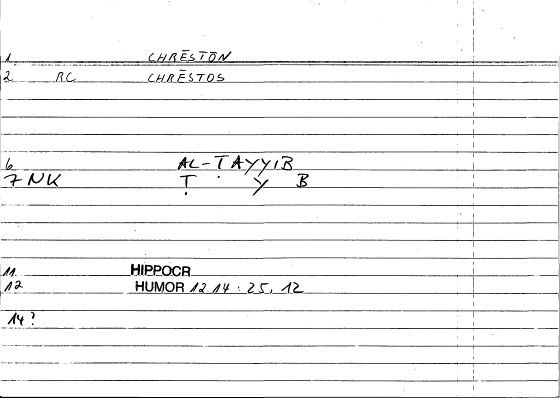 1 CHRĒSTŌN
2 RC CHRĒSTOS
6 AL-ṬAYYIB
7 NK Ṭ Y B
11 HIPPOCR
12 HUMOR 12 14 : 25, 12
14?